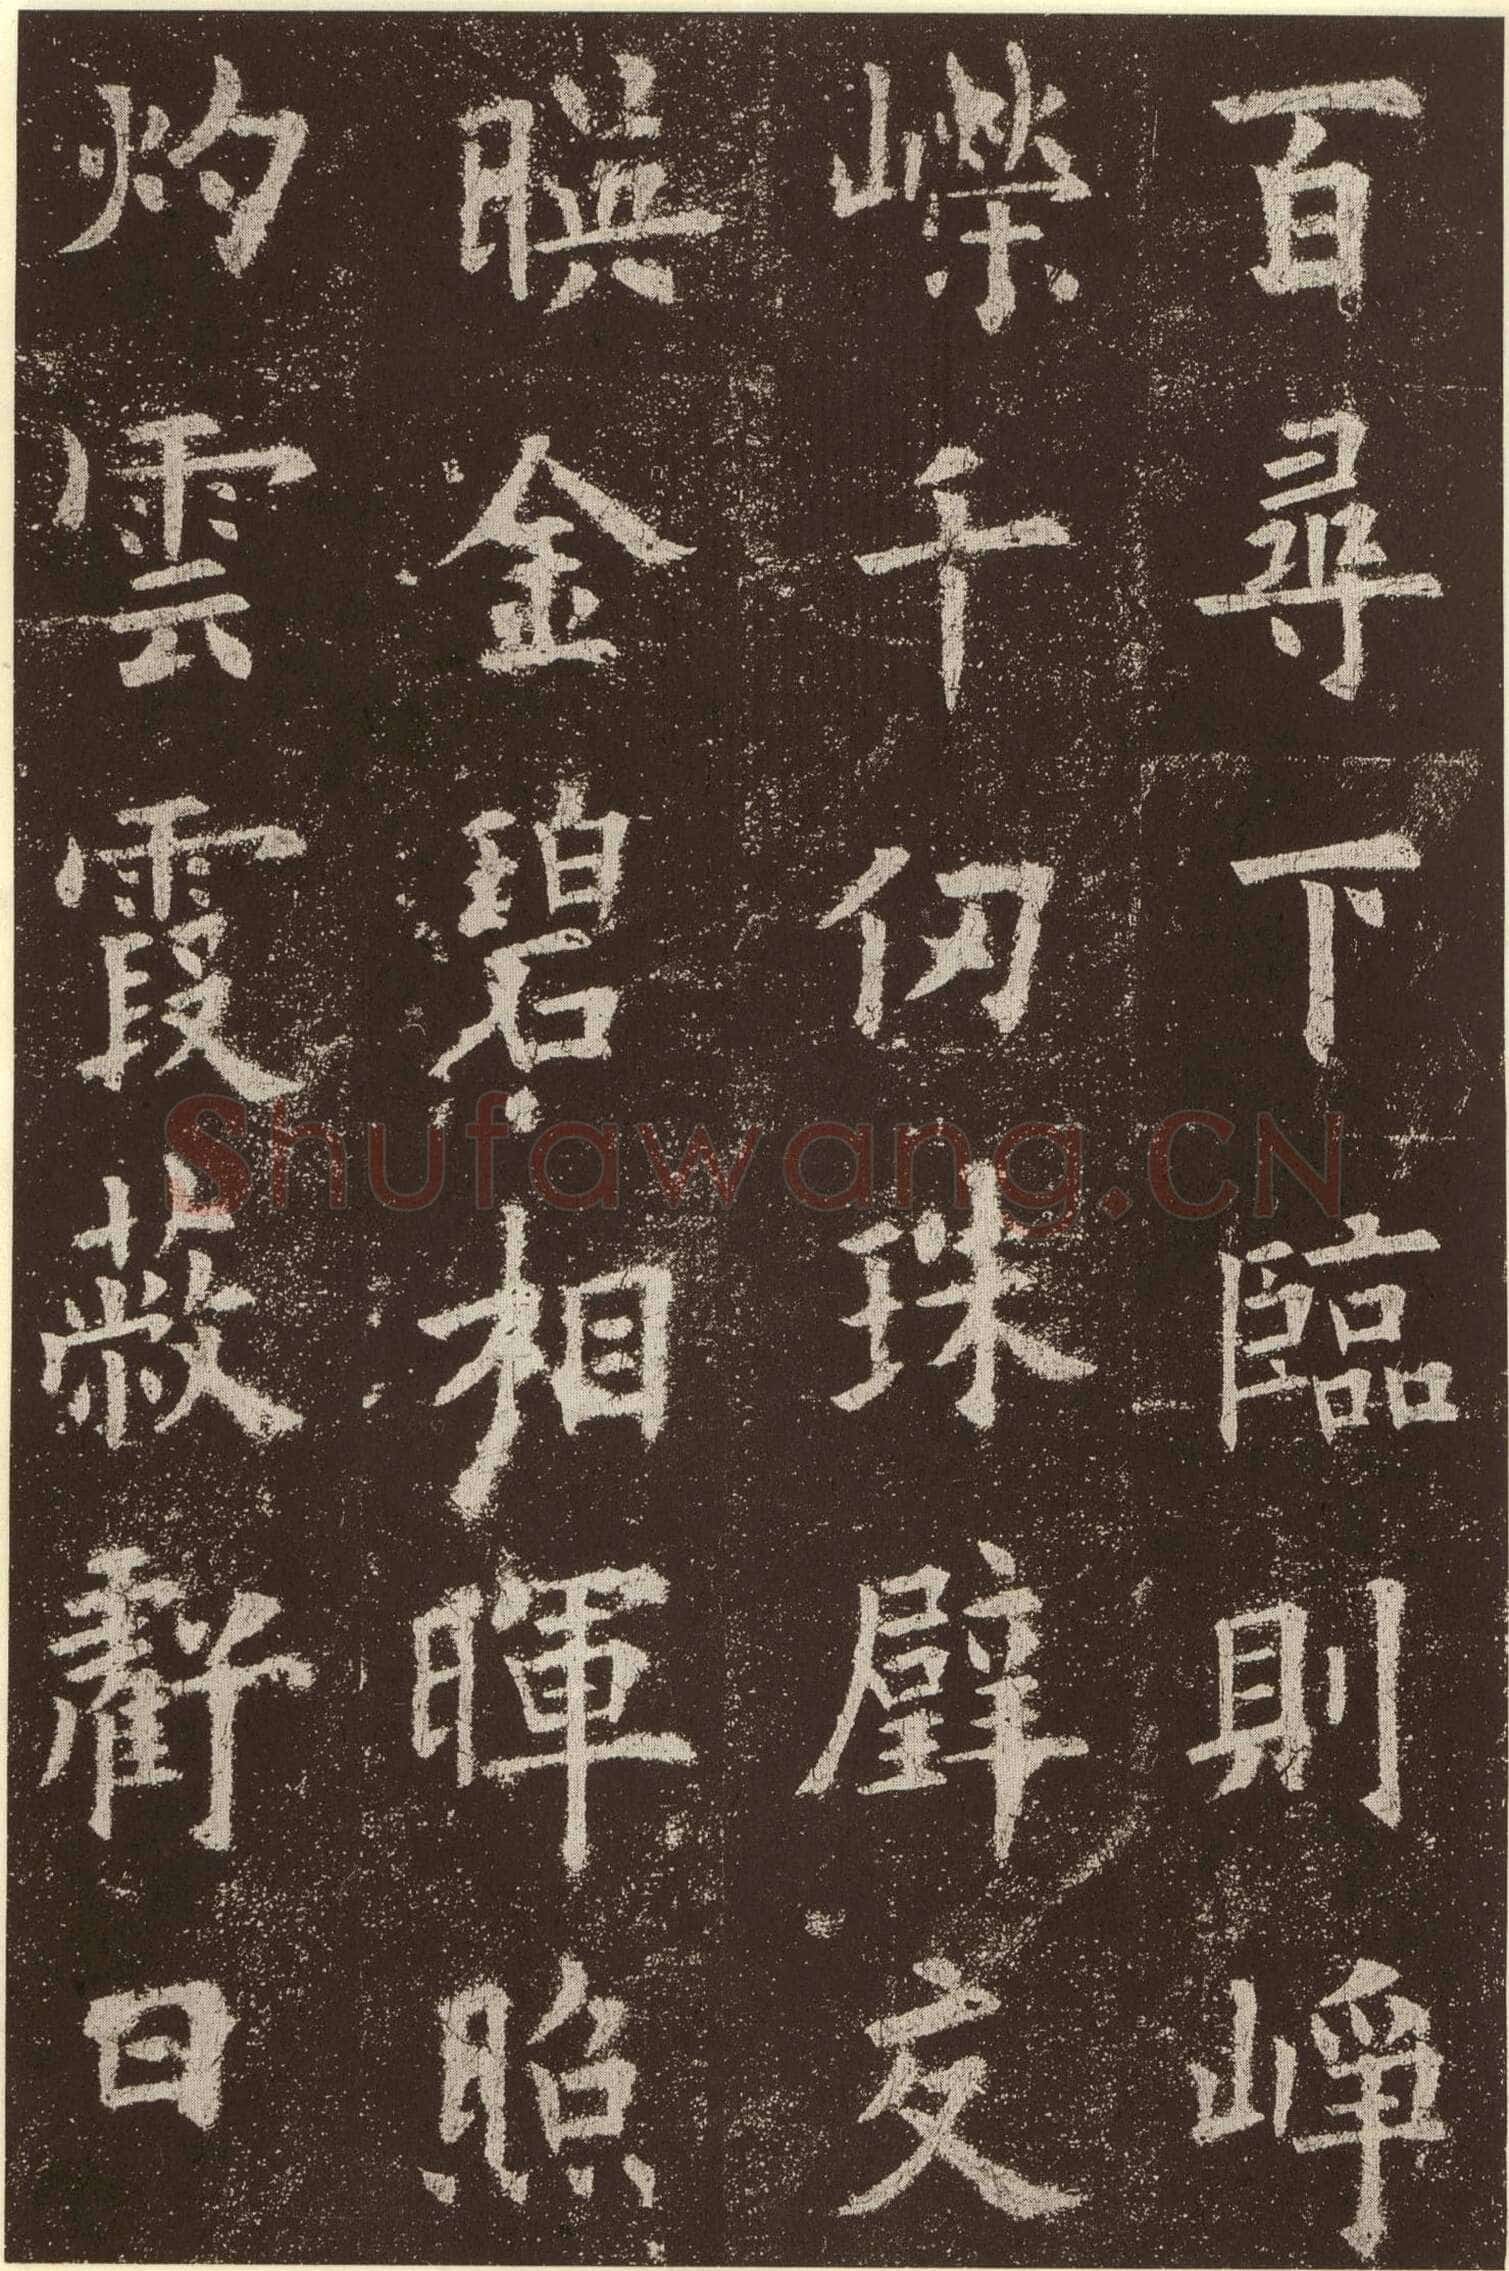 百尋下臨則崢
嶸千仞珠壁交
暎金碧相暉照
灼雲霞蔽虧日
Shufawang.CN